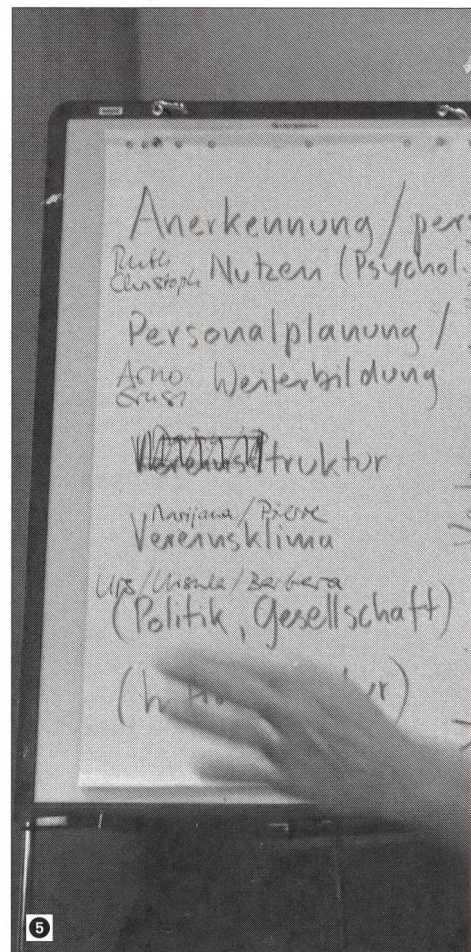 Anerkennung / pers
Ruth
Christoph Nutzen (Psychol.
Personalplanung /
Arno
Ernst Weiterbildung
Vereinsstruktur
Marijana / Pierre
Vereinsklima
Urs / Ursula / Barbara
(Politik, Gesellschaft)
(
5